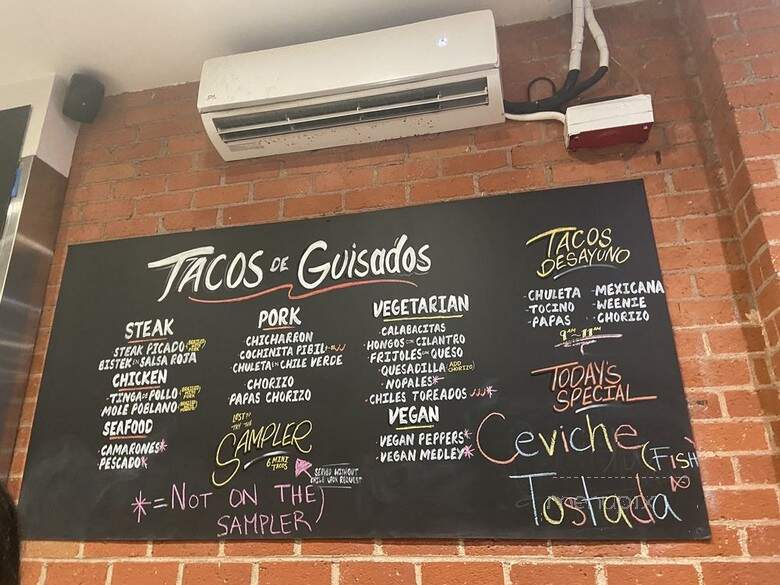 TACOS DE GUISADOS
STEAK
STEAK PICADO
BISTEK EN SALSA ROJA
CHICKEN
TINGA DE POLLO
MOLE POBLANO
SEAFOOD
CAMARONES*
PESCADO*
PORK
CHICHARRON
COCHINITA PIBIL
CHULETA EN CHILE VERDE
CHORIZO
PAPAS CHORIZO
TRY THE
SAMPLER
6 MINI
TACOS
SERVED WITHOUT
CHILE UPON REQUEST
*=NOT ON THE
SAMPLER
VEGETARIAN
-CALABACITAS
-HONGOS CON CILANTRO
-FRIJOLES CON QUESO
-QUESADILLA (ADD CHORIZO)
-NOPALES*
-CHILES TOREADOS *
VEGAN
-VEGAN PEPPERS*
-VEGAN MEDLEY*
TACOS
DESAYUNO
-CHULETA
-TOCINO
-PAPAS
-MEXICANA
-WEENIE
-CHORIZO
9AM-11AM
TODAY'S
SPECIAL
Ceviche (Fish)
Tostada